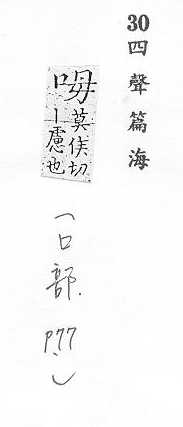 30 四聲篇海
呣 莫侯切
丨慮也
(口部. P77.)